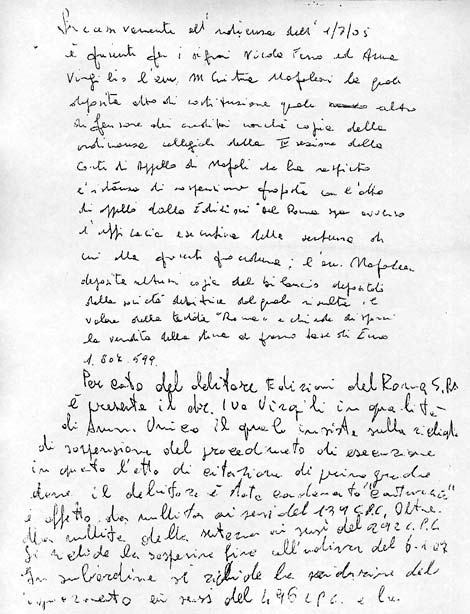 Successivamente all'udienza dell' 1/7/05
è presente per i sigg.ri Nicola Turco ed Anna
Virgilio l'avv. M Cristina Napoleoni la quale
deposita atto di costituzione quale altro
difensore dei creditori nonché copia della
ordinanza collegiale della I sezione della
Corte di Appello di Napoli che ha respinto
l'istanza di sospensione proposta con l'atto
di appello dalla Edizioni del Roma spa avverso
l'efficacia esecutiva della sentenza di
cui alla presente procedura; l'avv. Napoleoni
deposita altresì copia del bilancio depositato
della società debitrice dal quale risulta il
valore della testata "Roma" e chiede disporsi
la vendita della stessa al prezzo base di Euro
1.807.599.
Per conto del debitore Edizioni del Roma S.P.A
è presente il dr. Ivo Virgili in qualità
di Amm. Unico il quale insiste sulla richiesta
di sospensione del procedimento di esecuzione
in quanto l'atto di citazione di primo grado
dove il debitore è stato condannato
è affetto da nullità ai sensi del 139 C.P.C. Oltre
alla nullità della sentenza ai sensi del 292 C.P.C
Si richiede la sospensione fino all'udienza del
In subordine si richiede la riduzione del
pignoramento ai sensi del 496 C.P.C. e la